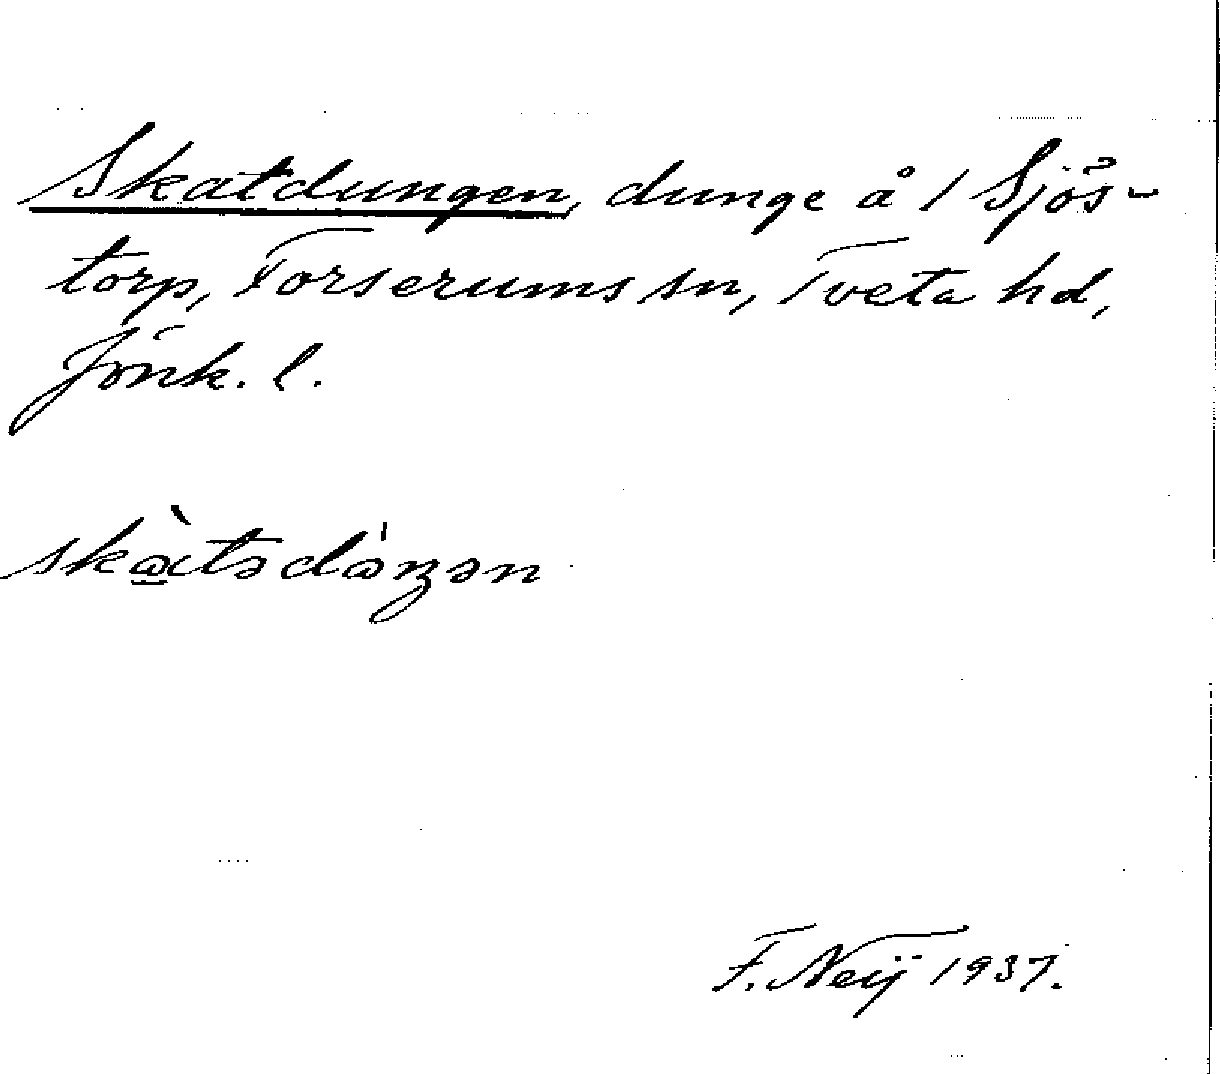 Skatdungen, dunge å 1 Sjös-
torp, Forserums sn, Tveta hd,
Jönk. l.
F. Neij 1937.